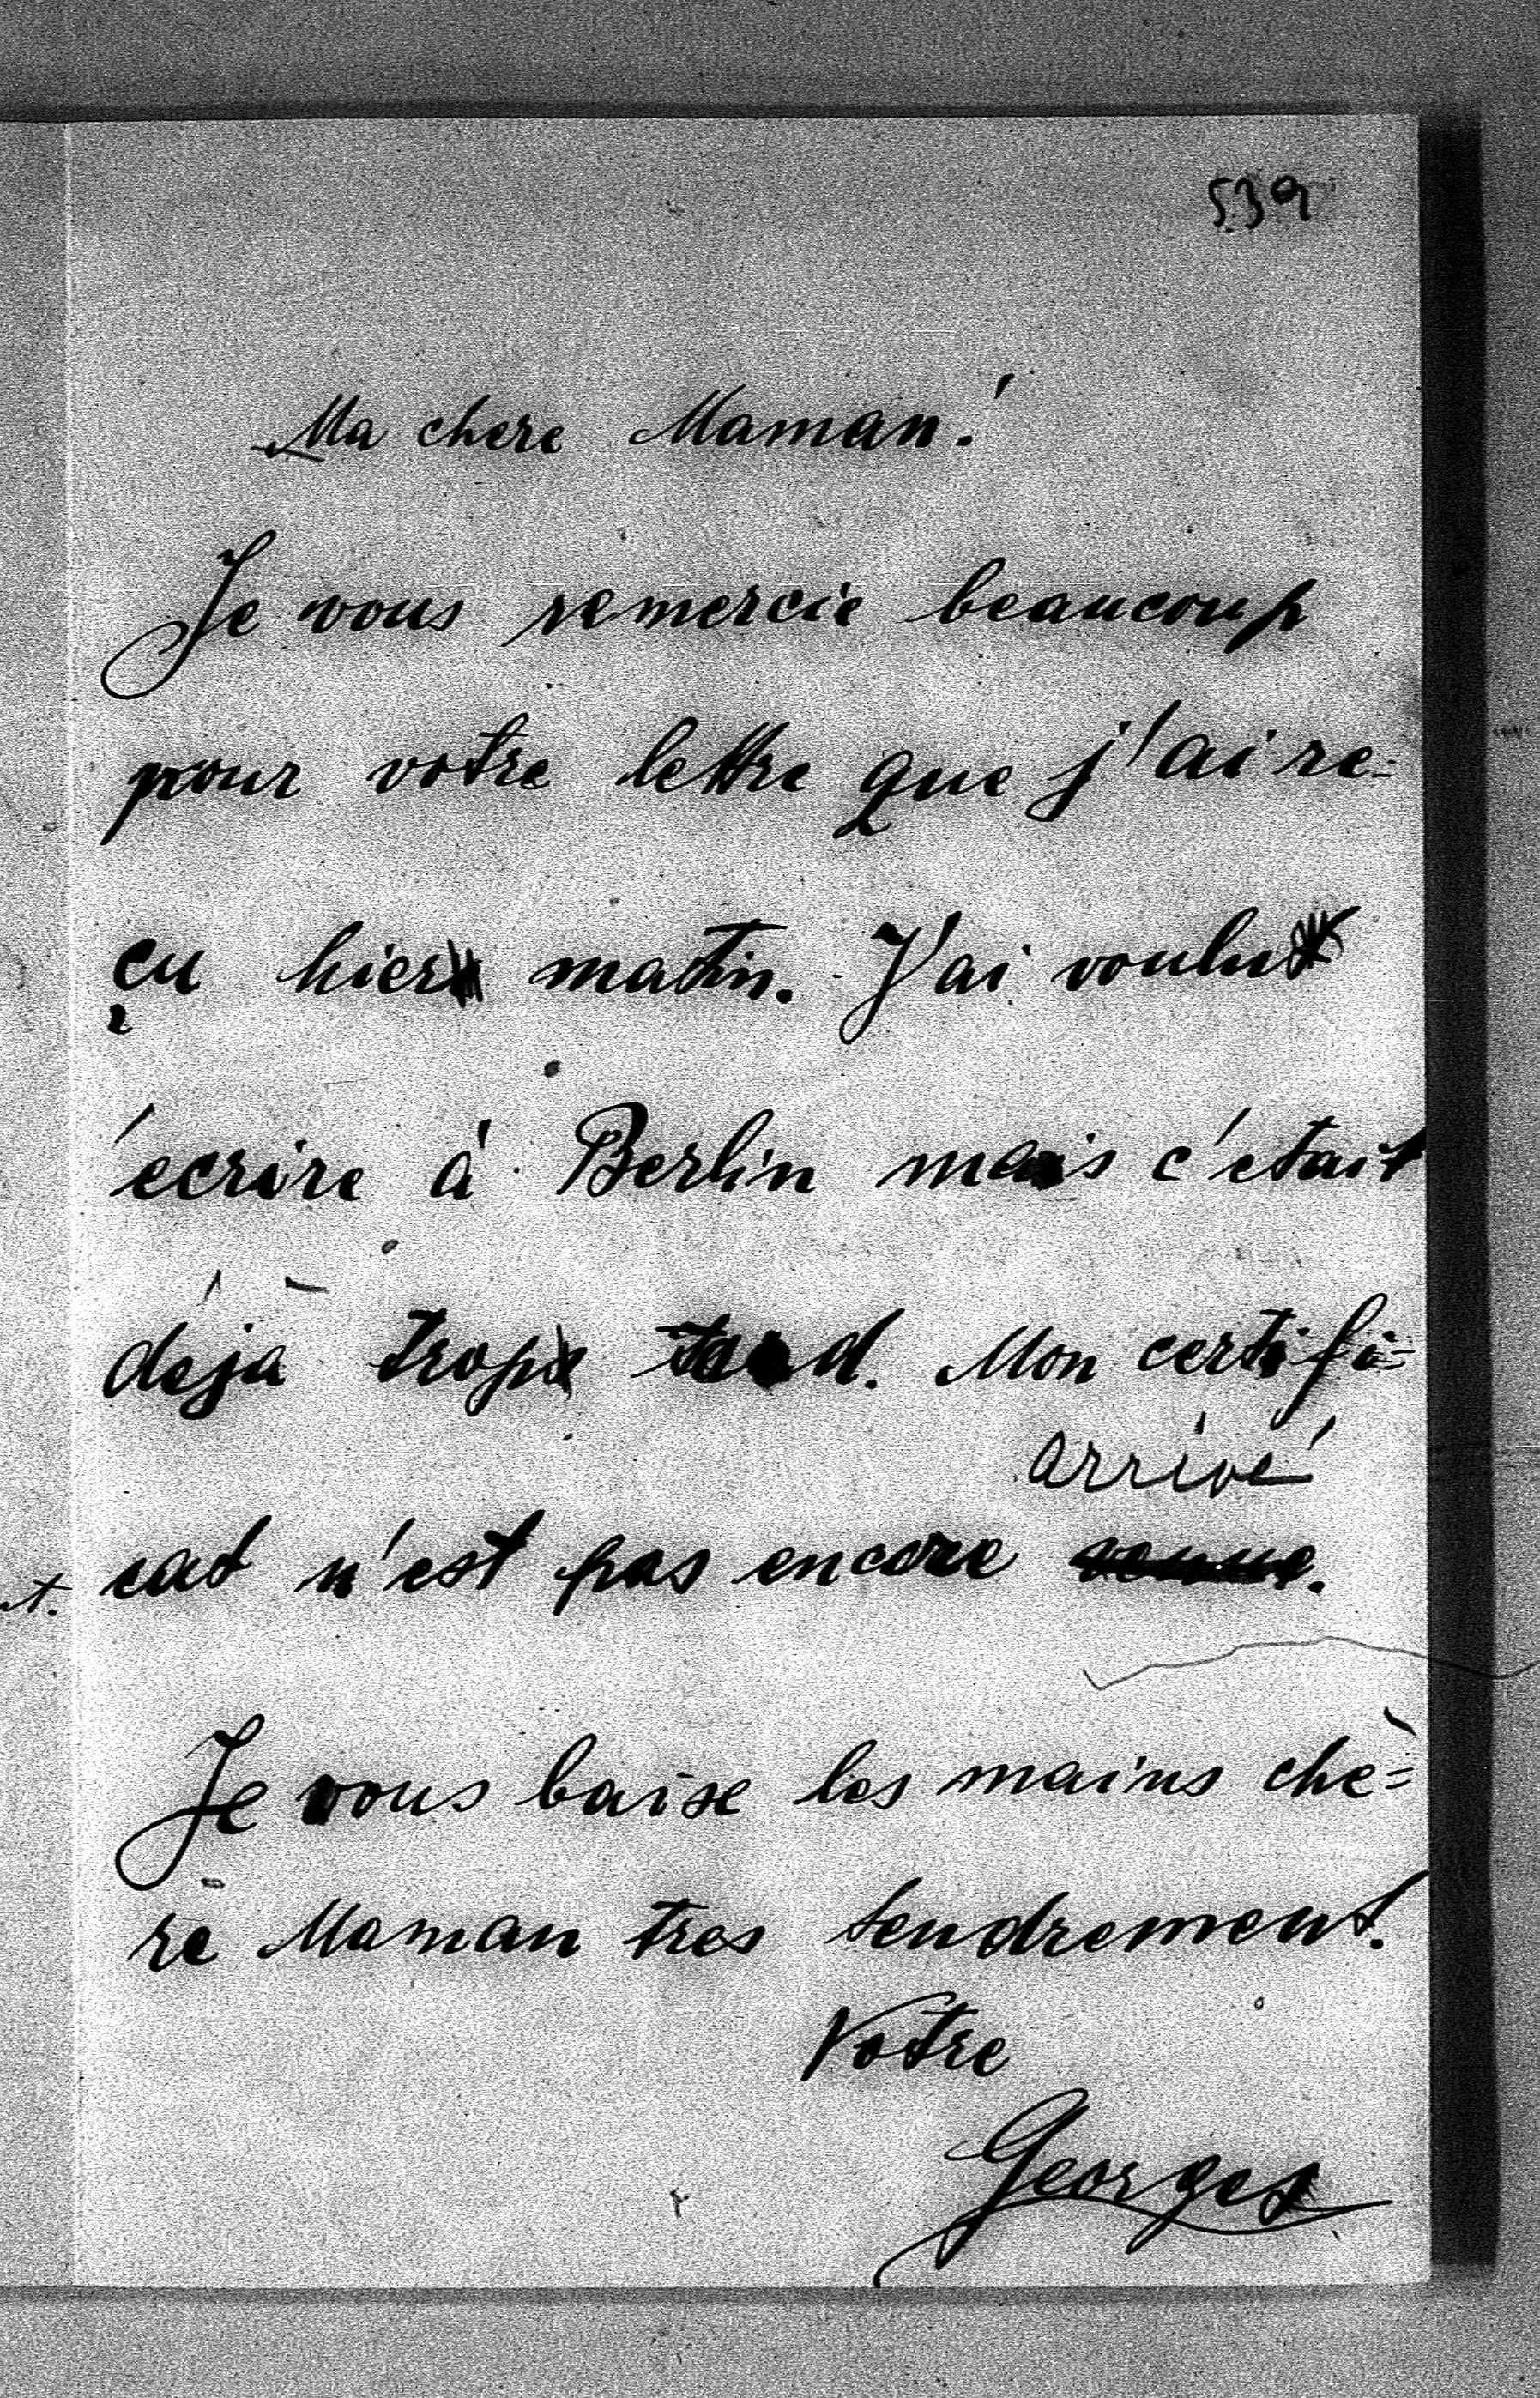 539
Ma chere Maman!
Je vous remercie beaucoup
pour votre lettre que j'ai re=
çu hier matin. J'ai voulu
écrire à Berlin mais c'etait
déjà trop tard. Mon certifi=
arrivé
cat n'est pas encore venue.
t.
Je vous baise les mains chè=
re Maman tres tendrement.
Votre
Georges